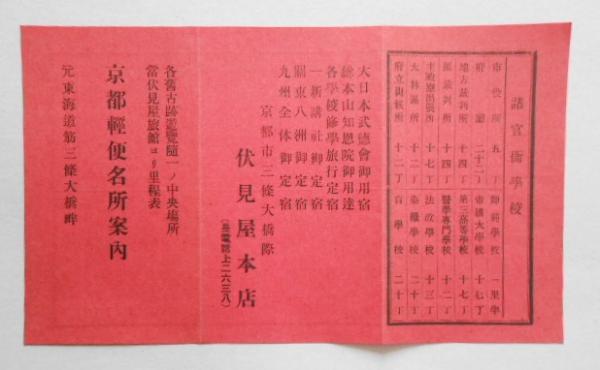 諸官衙學校
市役所 五丁
府廳 二十二丁
地方裁判所 十四丁
區裁判所 十四丁
主殿寮出張所 十七丁
大林區所 十二丁
府立測候所 十二丁
師範學校 一里半
帝國大學校 十七丁
第三高等學校 十七丁
醫學專門學校 十二丁
法政學校 十三丁
染織學校 二十丁
盲學校 二十丁
大日本武德會御用宿
總本山知恩院御用達
各學校修學旅行定宿
一新講社御定宿
關東八洲御定宿
九州全体御定宿
京都市三條大橋際
伏見屋本店
(長電話上二六三八)
各舊古跡遊覽隨一ノ中央塲所
當伏見屋旅館ヨリ里程表
京都輕便名所案内
元東海道筋三條大橋畔